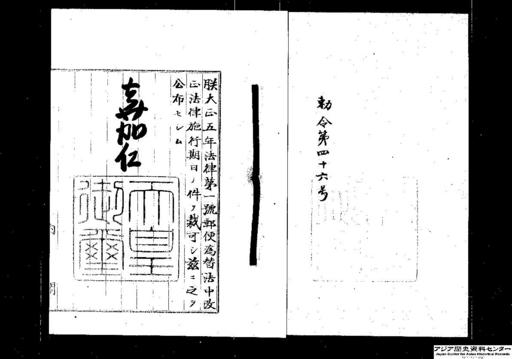 勅令第四十六号
朕大正五年法律第一號郵便為替法中改
正法律施行期日ノ件ヲ裁可シ茲ニ之ヲ
公布セシム
嘉仁
天皇
御璽
内閣
アジア歴史資料センター
Japan Center for Asian Historical Records